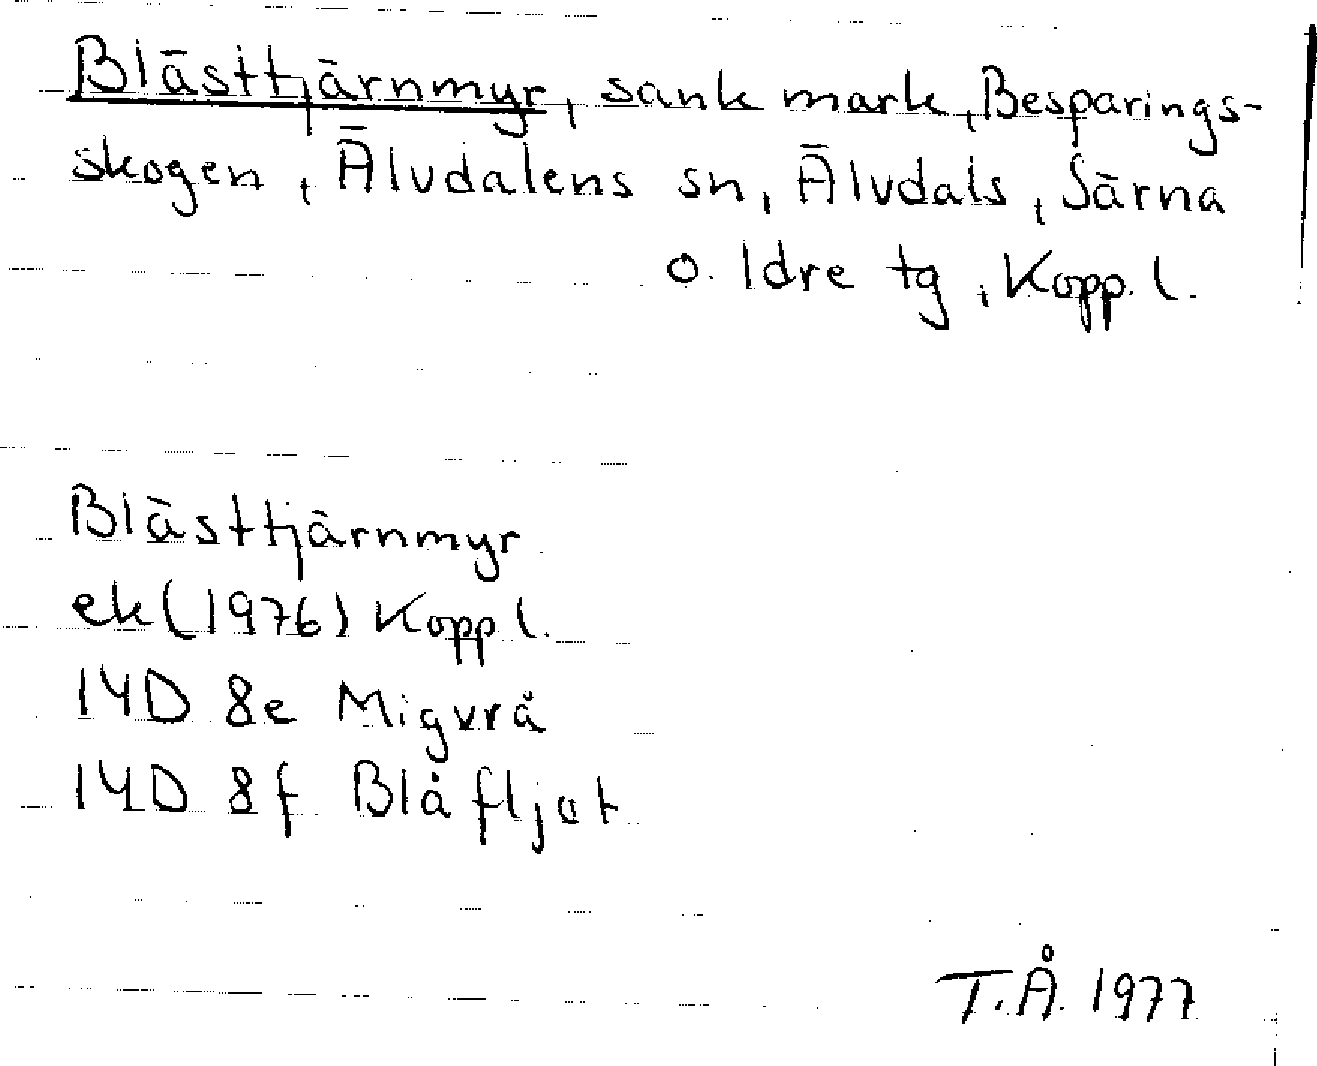 Blästtjärnmyr, sank mark, Besparings-
skogen, Älvdalens sn, Älvdals, Särna
o. Idre tg, Kopp. l.
Blästtjärnmyr
ek (1976) Kopp l.
14D 8e Migvrå
14D 8f Blåfljot
T.Å. 1977